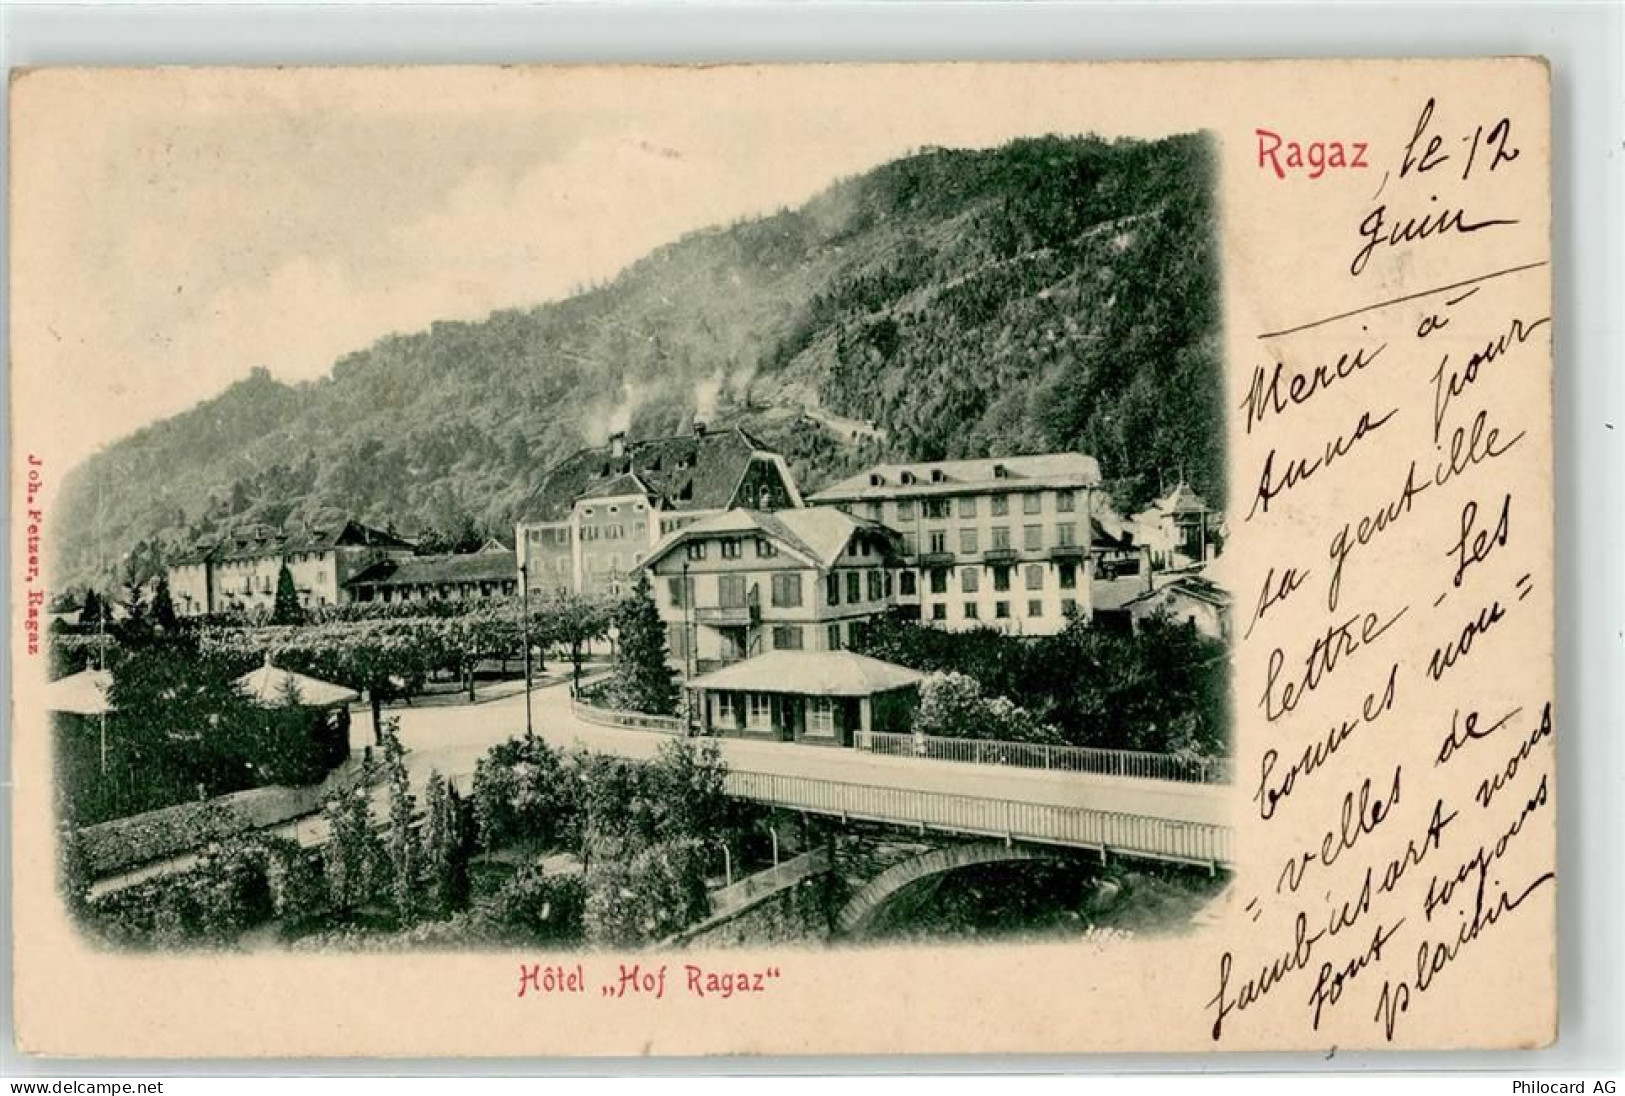 Ragaz, le 12
Juin
Merci à
Anna pour
sa gentille
lettre - Les
bonnes nou=
=velles de
Lamb'usart nous
font toujours
plaisir
Hôtel „Hof Ragaz“
Joh. Fetzer, Ragaz
delcampe.net
Philocard AG